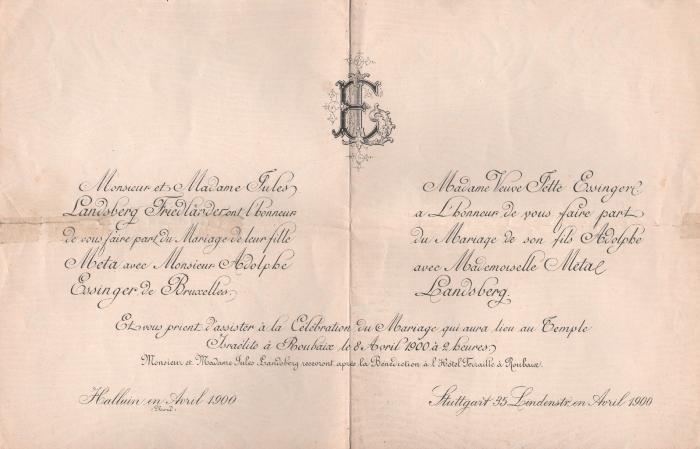 Monsieur et Madame Jules
Landsberg Friedländer ont l'honneur
de vous faire part du Mariage de leur fille
Meta avec Monsieur Adolphe
Essinger de Bruxelles.
Madame Veuve Jette Essinger
a l'honneur de vous faire part
du Mariage de son fils Adolphe
avec Mademoiselle Meta
Landsberg.
Et vous prient d'assister à la Célébration du Mariage qui aura lieu au Temple
Israélite à Roubaix le 8 Avril 1900 à 2 heures.
Monsieur et Madame Jules Landsberg recevront après la Bénédiction à l'Hôtel Ferraille à Roubaix.
Halluin en Avril 1900
(Nord)
Stuttgart 35 Lindenstr. en Avril 1900